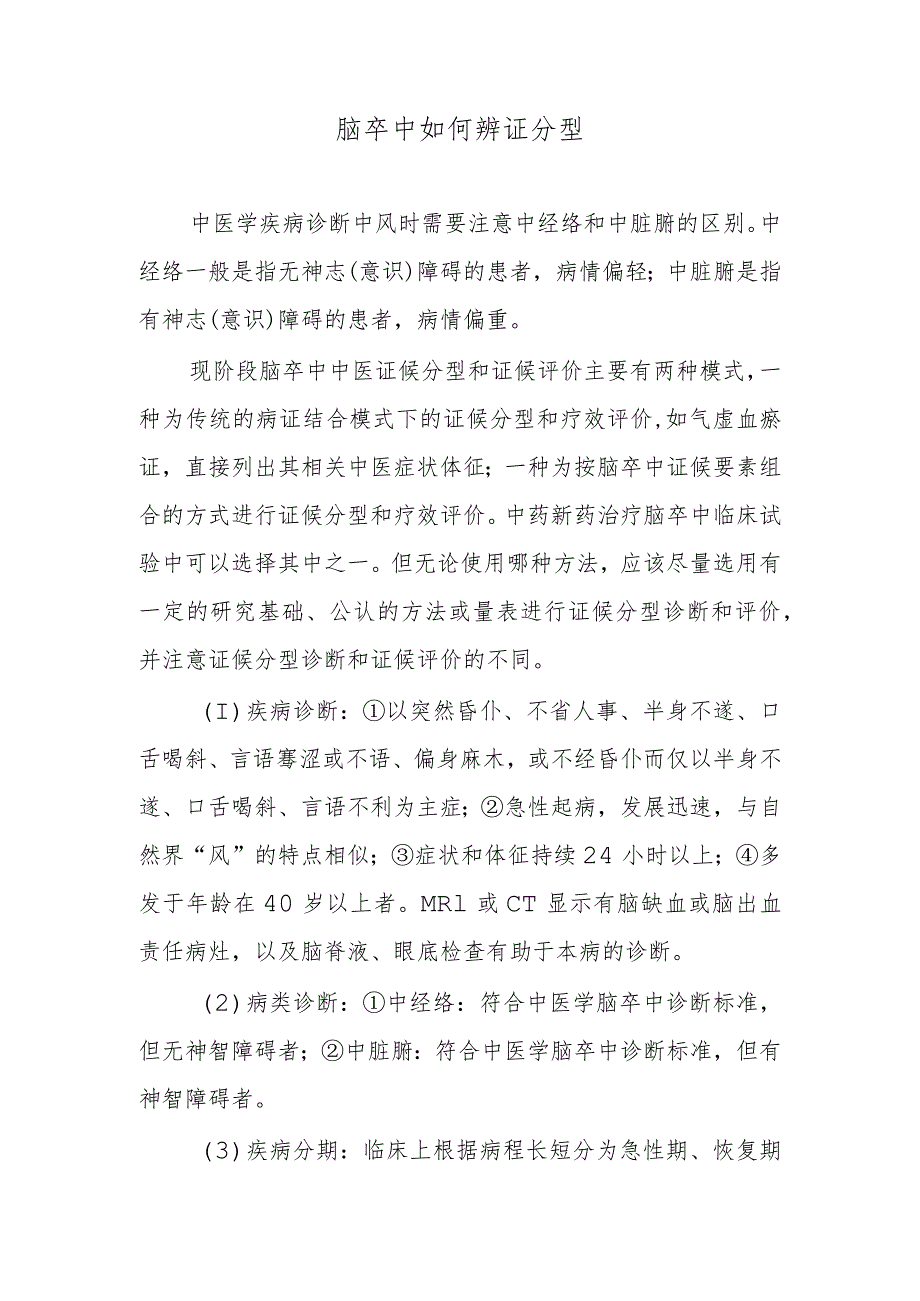 脑卒中如何辨证分型
中医学疾病诊断中风时需要注意中经络和中脏腑的区别。中
经络一般是指无神志(意识)障碍的患者，病情偏轻；中脏腑是指
有神志(意识)障碍的患者，病情偏重。
现阶段脑卒中中医证候分型和证候评价主要有两种模式，一
种为传统的病证结合模式下的证候分型和疗效评价,如气虚血瘀
证，直接列出其相关中医症状体征；一种为按脑卒中证候要素组
合的方式进行证候分型和疗效评价。中药新药治疗脑卒中临床试
验中可以选择其中之一。但无论使用哪种方法，应该尽量选用有
一定的研究基础、公认的方法或量表进行证候分型诊断和评价，
并注意证候分型诊断和证候评价的不同。
(I)疾病诊断：①以突然昏仆、不省人事、半身不遂、口
舌喝斜、言语骞涩或不语、偏身麻木，或不经昏仆而仅以半身不
遂、口舌喝斜、言语不利为主症；②急性起病，发展迅速，与自
然界“风”的特点相似；③症状和体征持续24小时以上；④多
发于年龄在40岁以上者。MRl或CT显示有脑缺血或脑出血
责任病灶，以及脑脊液、眼底检查有助于本病的诊断。
(2)病类诊断：①中经络：符合中医学脑卒中诊断标准，
但无神智障碍者；②中脏腑：符合中医学脑卒中诊断标准，但有
神智障碍者。
(3)疾病分期：临床上根据病程长短分为急性期、恢复期